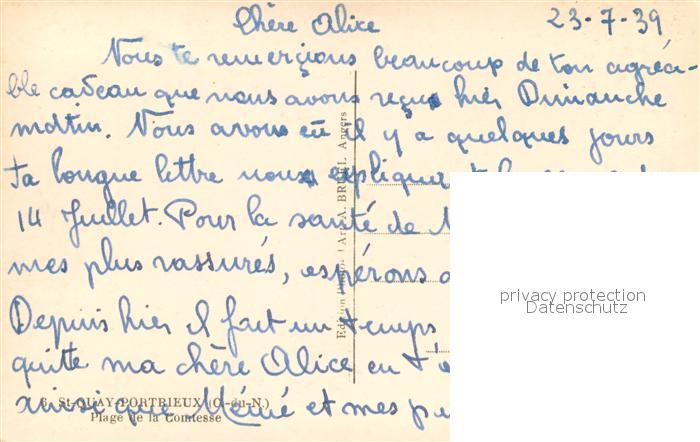 Chère Alice 23-7-39
Nous te remerçions beaucoup de ton agréa-
ble cadeau que nous avons reçu hier Dimanche
matin. Nous avons eu il y a quelques jours
ta longue lettre nous expliquant
14 Juillet. Pour la santé de
mes plus rassurés, espérons
Depuis hier il fait un temps
quitte ma chère Alice en t'
ainsi que Mémé et mes
6. St-QUAY-PORTRIEUX (C.-du-N.)
Plage de la Comtesse
A. BRUEL Angers
privacy protection
Datenschutz